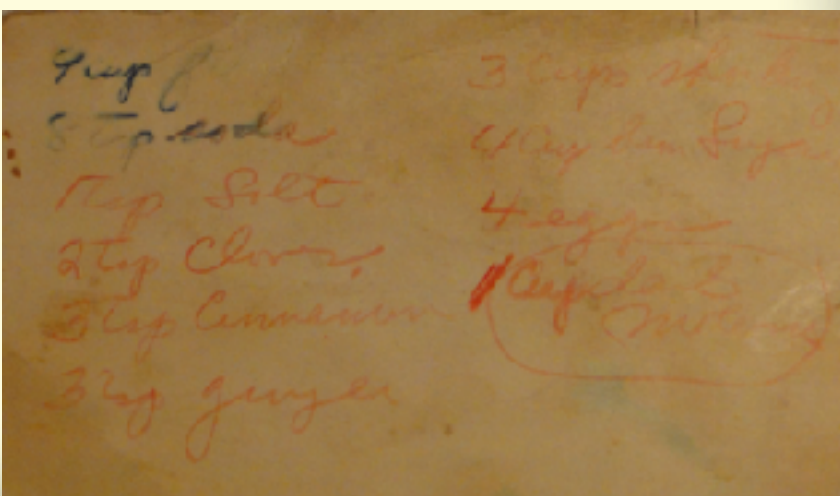 9 cup f
8 tsp. soda
1 tsp Salt
2 tsp Cloves
3 tsp Cinnamon
3 tsp ginger
3 Cups
4 Cup Sugar
4 eggs
1 Cup
molasses